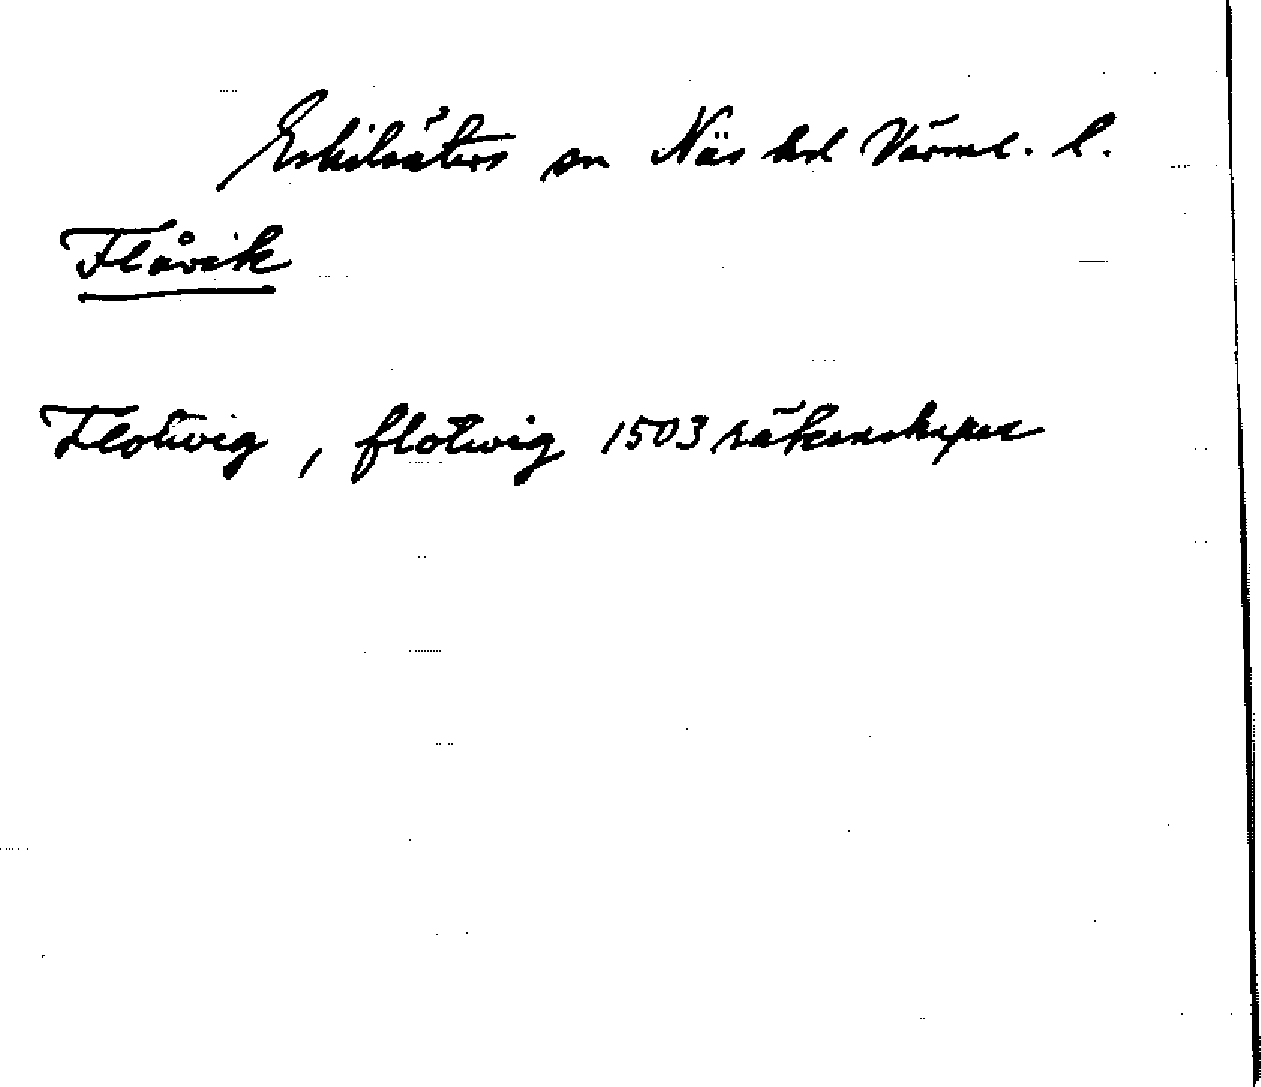 Eskilsäters sn Näs hd Värml. l.
Flåvik
Flotwig, flotwig 1503 räkenskaper